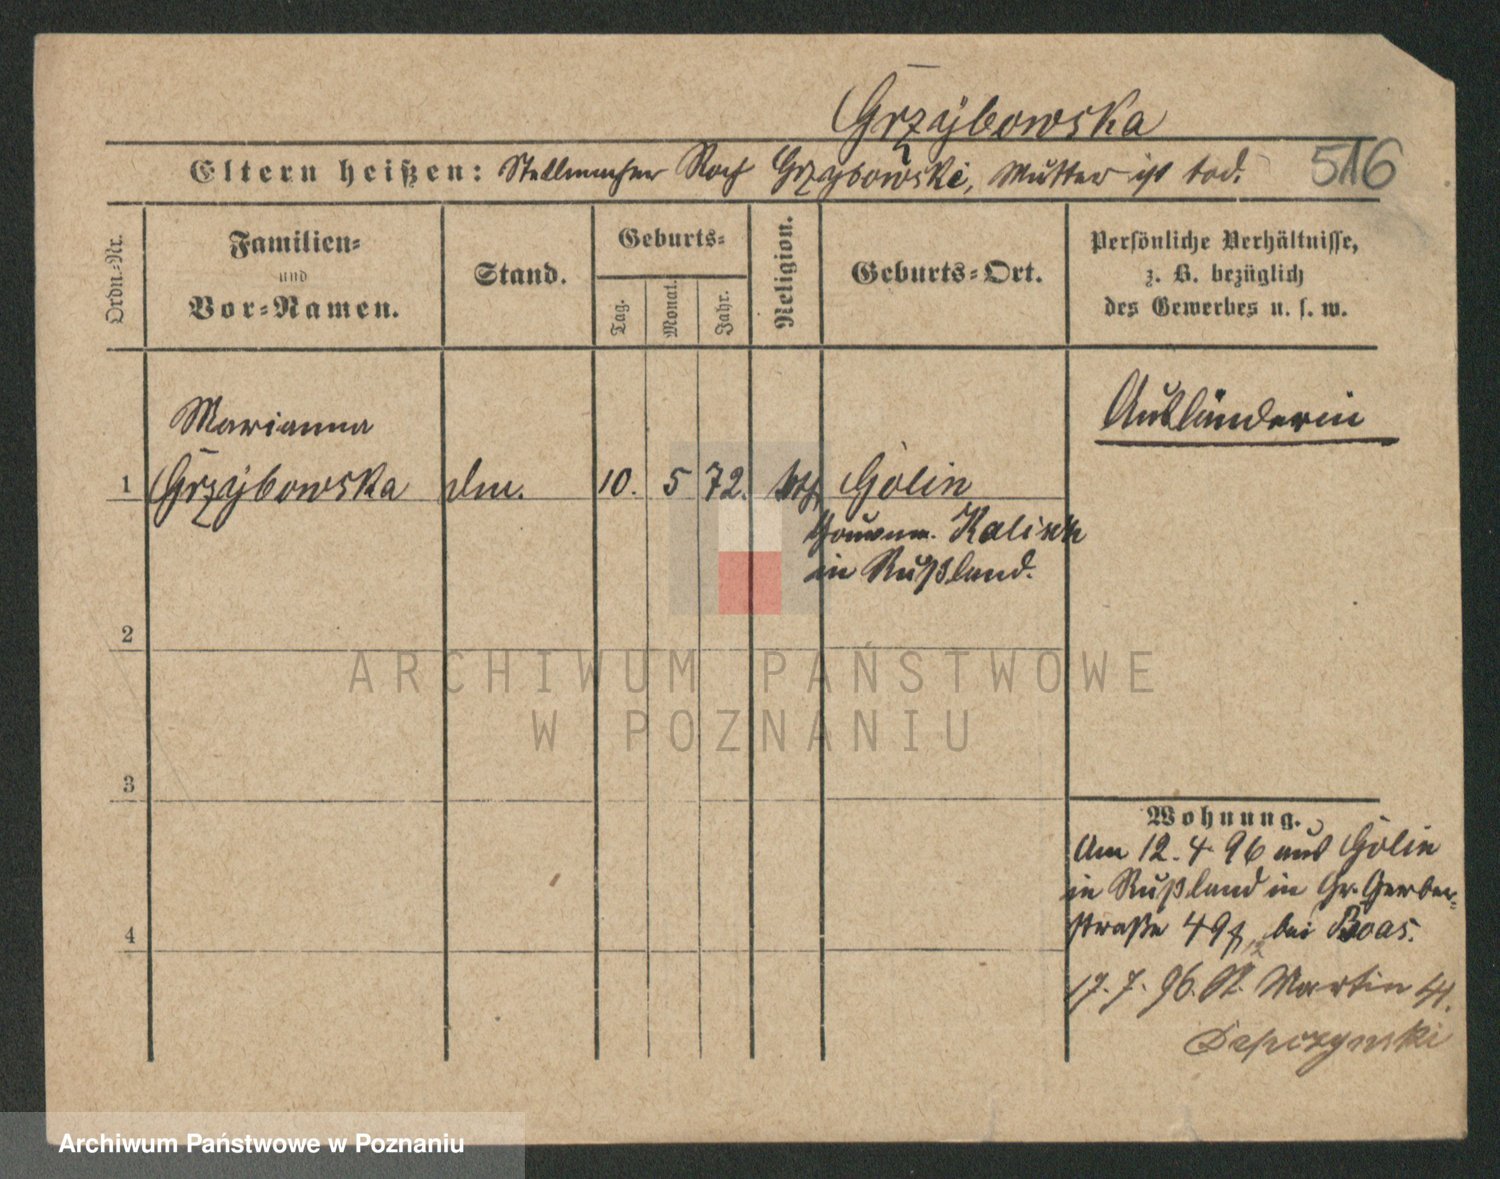 Grzybowska
Eltern heißen: Stellmacher Roch Grzybowski, Mutter ist tod.
516
Ordn.-Nr.
Familien-
und
Vor-Namen.
Stand.
Geburts-
Tag.
Monat.
Jahr.
Religion.
Geburts-Ort.
Persönliche Verhältnisse,
z. B. bezüglich
des Gewerbes u. s. w.
Marianna
1 Grzybowska 10. 5 72. kth. Golin
Gouvern. Kalisch
in Rußland.
Ausländerin
2
3
4
Wohnung.
Am 12. 4. 96 aus Golin
in Rußland in Gr. Gerber-
straße 49 bei Boas.
17. 7. 96. St. Martin
ARCHIWUM PAŃSTWOWE
W POZNANIU
Archiwum Państwowe w Poznaniu